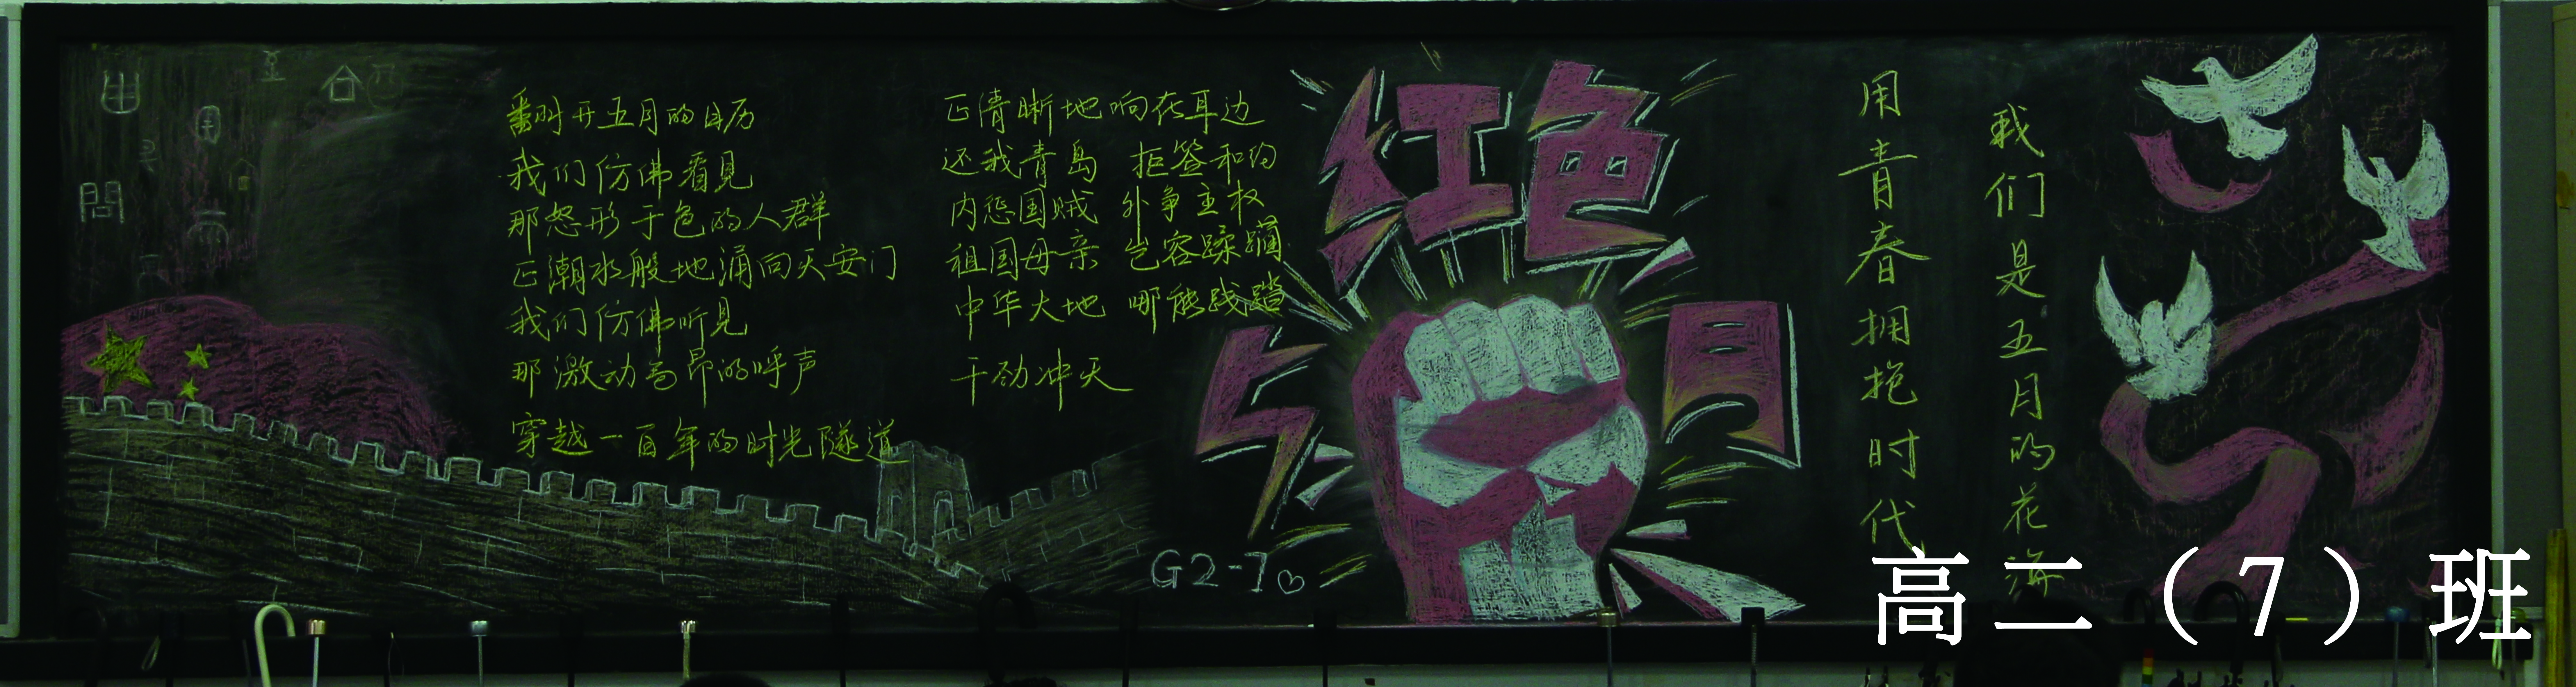 翻开五月的日历
我们仿佛看见
那怒形于色的人群
正潮水般地涌向天安门
我们仿佛听见
那激动高昂的呼声
穿越一百年的时光隧道
正清晰地响在耳边
还我青岛 拒签和约
内惩国贼 外争主权
祖国母亲 岂容蹂躏
中华大地 哪能践踏
干劲冲天
红色
五月
G2-7
用青春拥抱时代
我们是五月的花海
高二（7）班